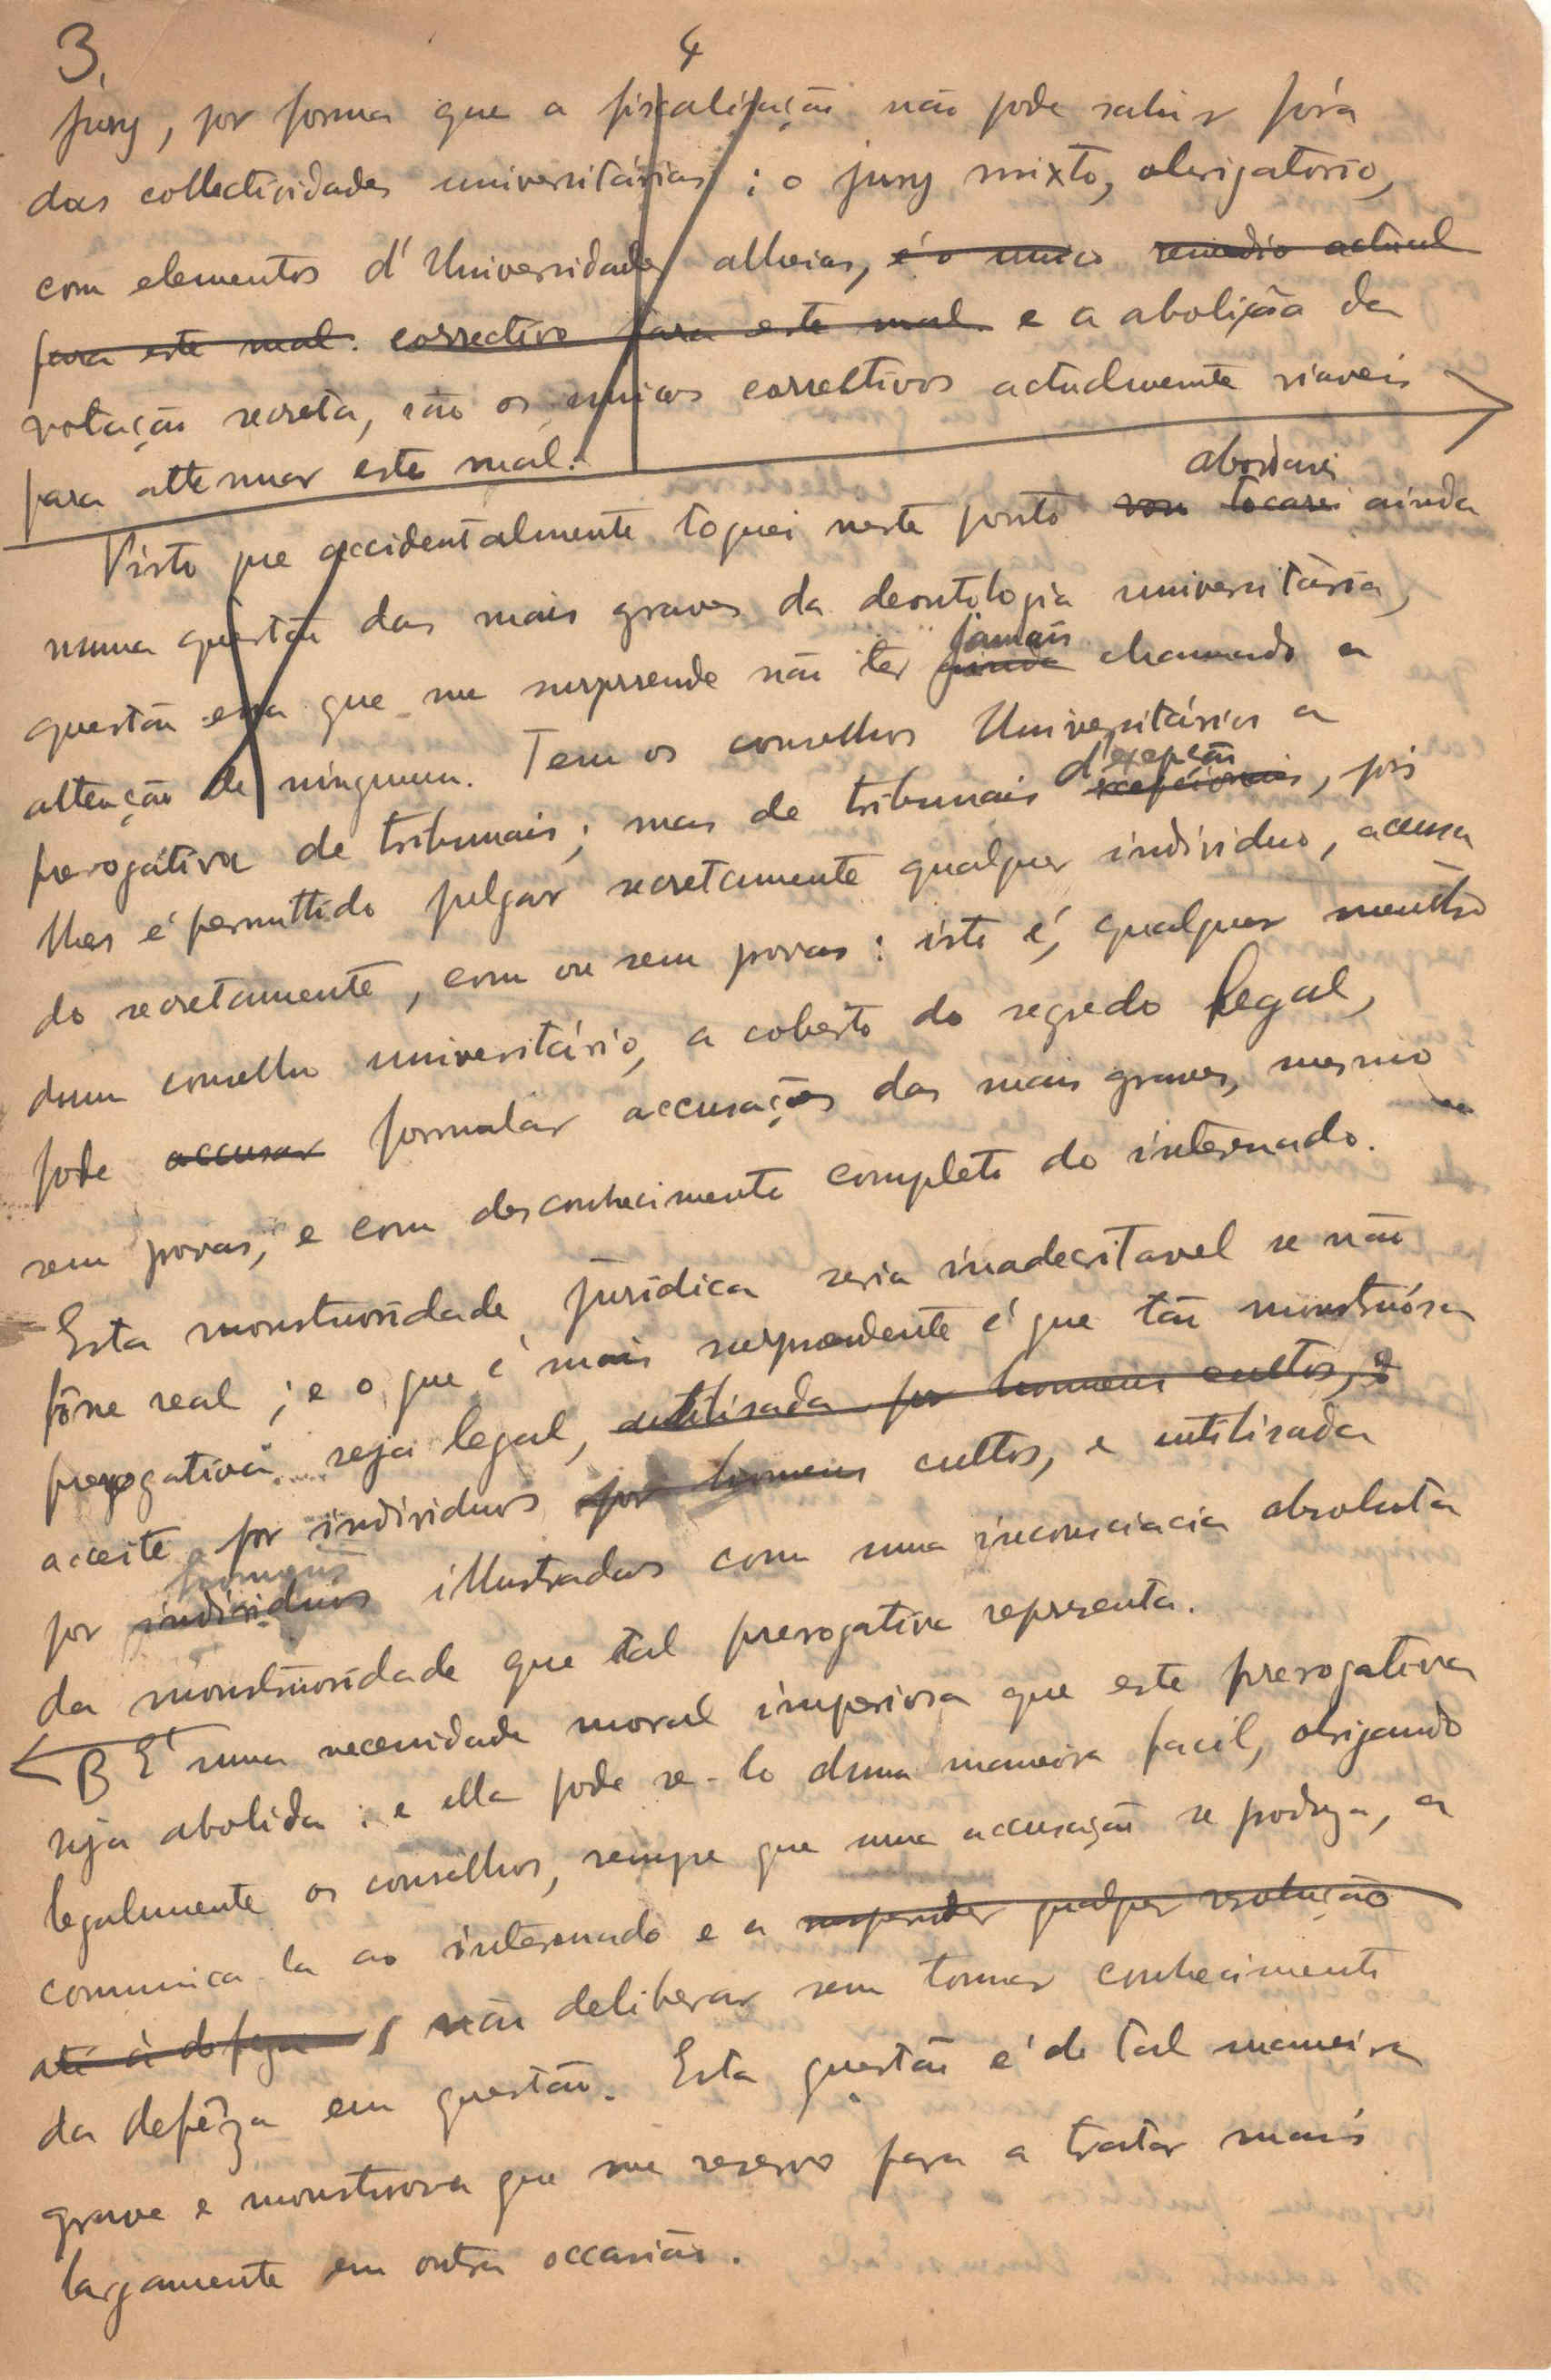 3.
4
jury, por forma que a fiscalisação não pode sahir fóra
das collectividades universitárias: o jury mixto, obrigatorio,
com elementos d'Universidades alheias, é o unico remedio actual
para este mal. correctivo para este mal. e a abolição da
votação secreta, são os unicos correctivos actualmente viaveis
para attenuar este mal.
abordarei
Visto que accidentalmente toquei neste ponto vou tocarei ainda
numa questão das mais graves da deontologia universitária,
jamais
questão essa que me surprende não ter ainda chamado a
attenção de ninguem. Tem os conselhos Universitários a
d'exepção
prerogativa de tribunais; mas de tribunais excepcionais, pois
lhes é permittido julgar secretamente qualquer individuo, accusa
do secretamente, com ou sem provas: isto é, qualquer membro
dum conselho universitário, a coberto do segredo legal,
pode accusar formular accusações das mais graves, mesmo
sem provas, e com desconhecimento completo do interessado.
Esta monstruosidade jurídica seria inadecritavel se não
fôsse real; e o que é mais surprendente é que tão monstruósa
prerogativa seja legal, utilisada por homens cultos, e
acceite por individuos por homens cultos, e utilisada
homens
por individuos illustrados com uma inconsciacia absoluta
da monstruosidade que tal prerogativa representa.
B E' uma necessidade moral imperiosa que esta prerogativa
seja abolida: e ella pode se-lo duma maneira facil, obrigando
legalmente os conselhos, sempre que uma accusação se produza, a
comunica-la ao interessado e a suspender qualquer resolução
até à defeza não deliberar sem tomar conhecimento
da defêza em questão. Esta questão é de tal maneira
grave e monstruosa que me reservo para a tratar mais
largamente em outra occasião.